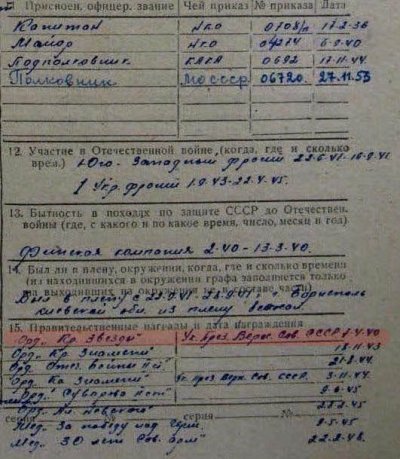 Присвоен. офицер. звание Чей приказ № приказа Дата
Капитан НКО 0108/п 17-2-36
Майор НКО 6-9-40
Подполковник 0692 17-11-44
Полковник МО СССР 06720 27.11.53
12. Участие в Отечественной войне (когда, где и сколько
врем.) Юго-Западный фронт 22-6-41-
1 Укр. фронт 1-9-43-22-4-45.
13. Бытность в походах по защите СССР до Отечествен.
войны (где, с какого и по какое время, число, месяц и год)
Финская кампания 2-40-13-3-40.
14. Был ли в плену, окружении, когда, где и сколько времени
(из находившихся в окружении графа заполняется только
на выходивших из окружения не в составе части)
Был в плену с г. Борисполь
Киевской обл. из плена бежал.
15. Правительственные награды и дата награждения
Орд. „Кр. Звезды" Ук. През. Верх. Сов. СССР 4-40
Орд. „Кр. Знамени" 18-11-43
Орд. Отеч. войны
Орд. „Кр. Знамени" Ук. През. Верх. Сов. СССР. 3-11-44
Орд. „Суворова 6-45
Орд. Ал. Невского
серия серия №
Мед. „За победу над Герм. 9-5-45
Мед. „30 лет Сов. арм" 22-2-48.